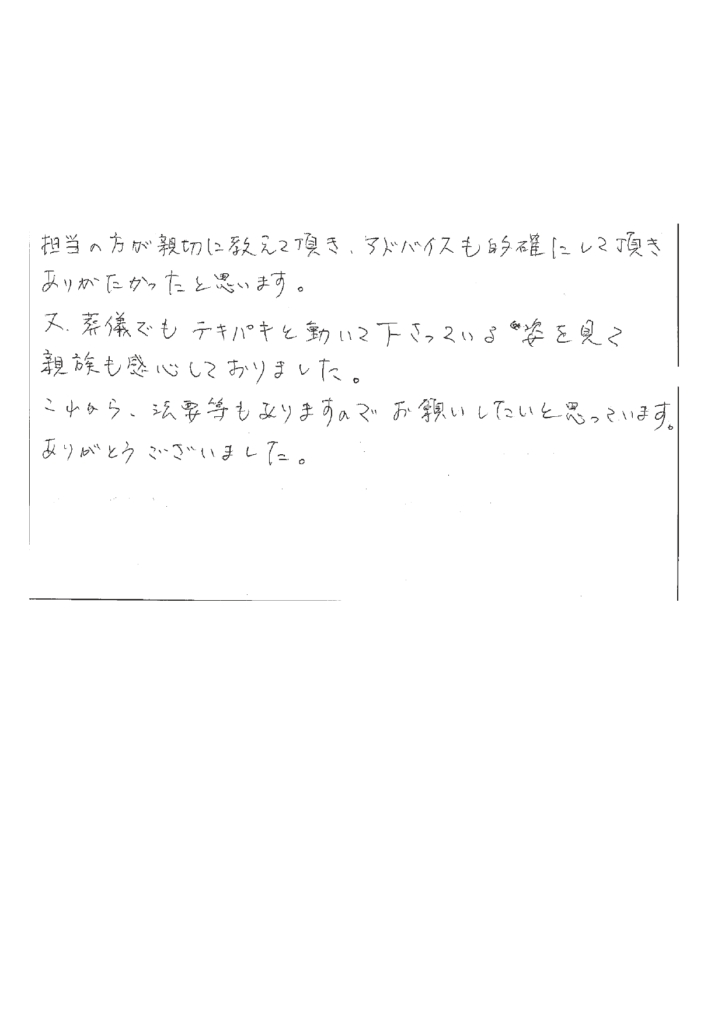 担当の方が親切に教えて頂き、アドバイスも的確にして頂き
ありがたかったと思います。
又、葬儀でもテキパキと動いて下さっている姿を見て
親族も感心しておりました。
これから、法要等もありますのでお願いしたいと思っています。
ありがとうございました。